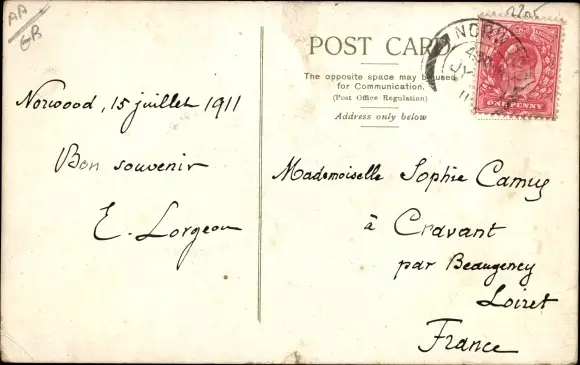 AA
GB
Norwood, 15 juillet 1911
Bon souvenir
E. Lorgeou
POST CARD
The opposite space may be used
for Communication.
(Post Office Regulation)
Address only below
NORW
JY
ONE PENNY
Mademoiselle Sophie Camus
à
Cravant
par Beaugency
Loiret
France